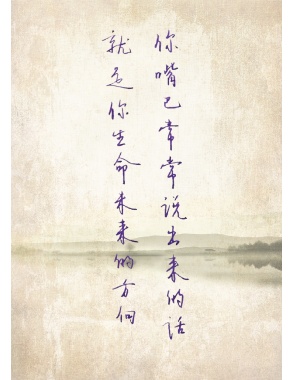 你嘴巴常常说出来的话
就是你生命未来的方向